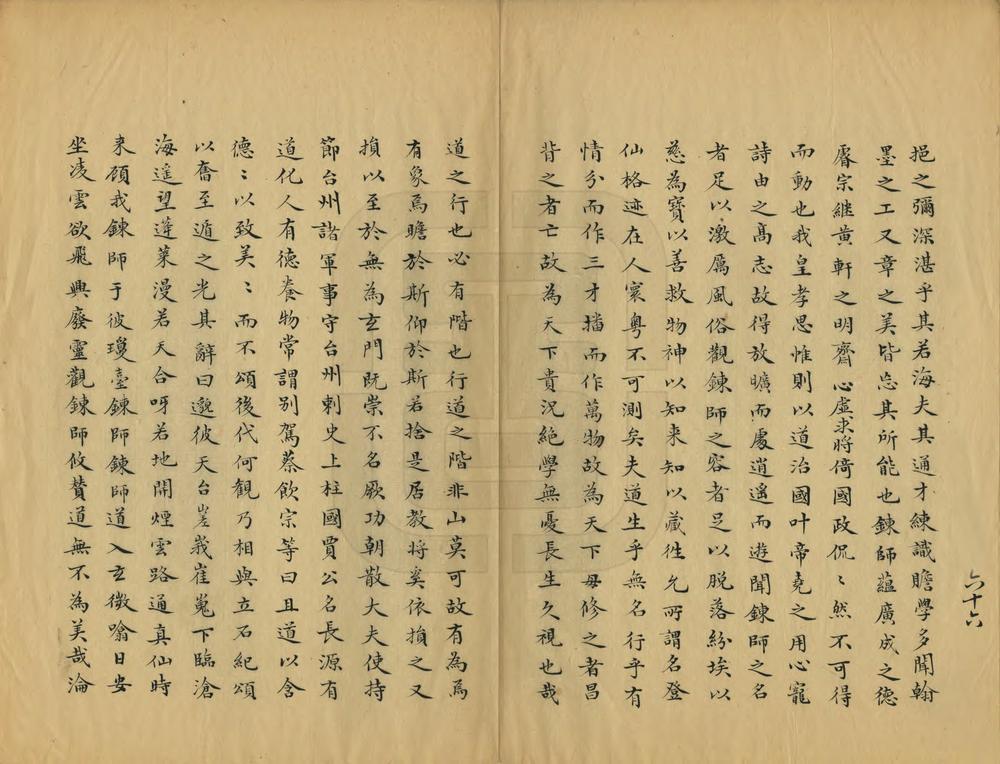 挹之彌深湛乎其若海夫其通才練識瞻學多聞翰
墨之工又章之美皆忘其所能也鍊師蘊廣成之德
睿宗繼黄軒之明齋心虛求將倚國政侃〻然不可得
而動也我皇孝思惟則以道治國叶帝堯之用心寵
詩由之髙志故得放曠而處逍遥而遊聞鍊師之名
者足以激厲風俗觀鍊師之容者足以脱落紛埃以
慈為寶以善救物神以知来知以藏徃允所謂名登
仙格迹在人寰粤不可測矣夫道生乎無名行乎有
情分而作三才播而作萬物故為天下母修之者昌
背之者亡故為天下貴況絶學無憂長生久視也哉
道之行也必有階也行道之階非山莫可故有為為
有象焉瞻於斯仰於斯若捨是居教将奚依損之又
損以至於無為玄門既崇不名厥功朝散大夫使持
節台州諸軍事守台州刺史上柱國賈公名長源有
道化人有德養物常謂别駕蔡飲宗等曰且道以含
德〻以致美〻而不頌後代何觀乃相與立石紀頌
以奮至遁之光其辭曰邈彼天台嵳峩崔嵬下臨滄
海遥望蓬莱漫若天合呀若地開煙雲路通真仙時
来頋我鍊師于彼瓊臺鍊師鍊師道入玄微噏日安
坐凌雲欲飛興廢靈觀鍊師攸賛道無不為美哉淪
六十六